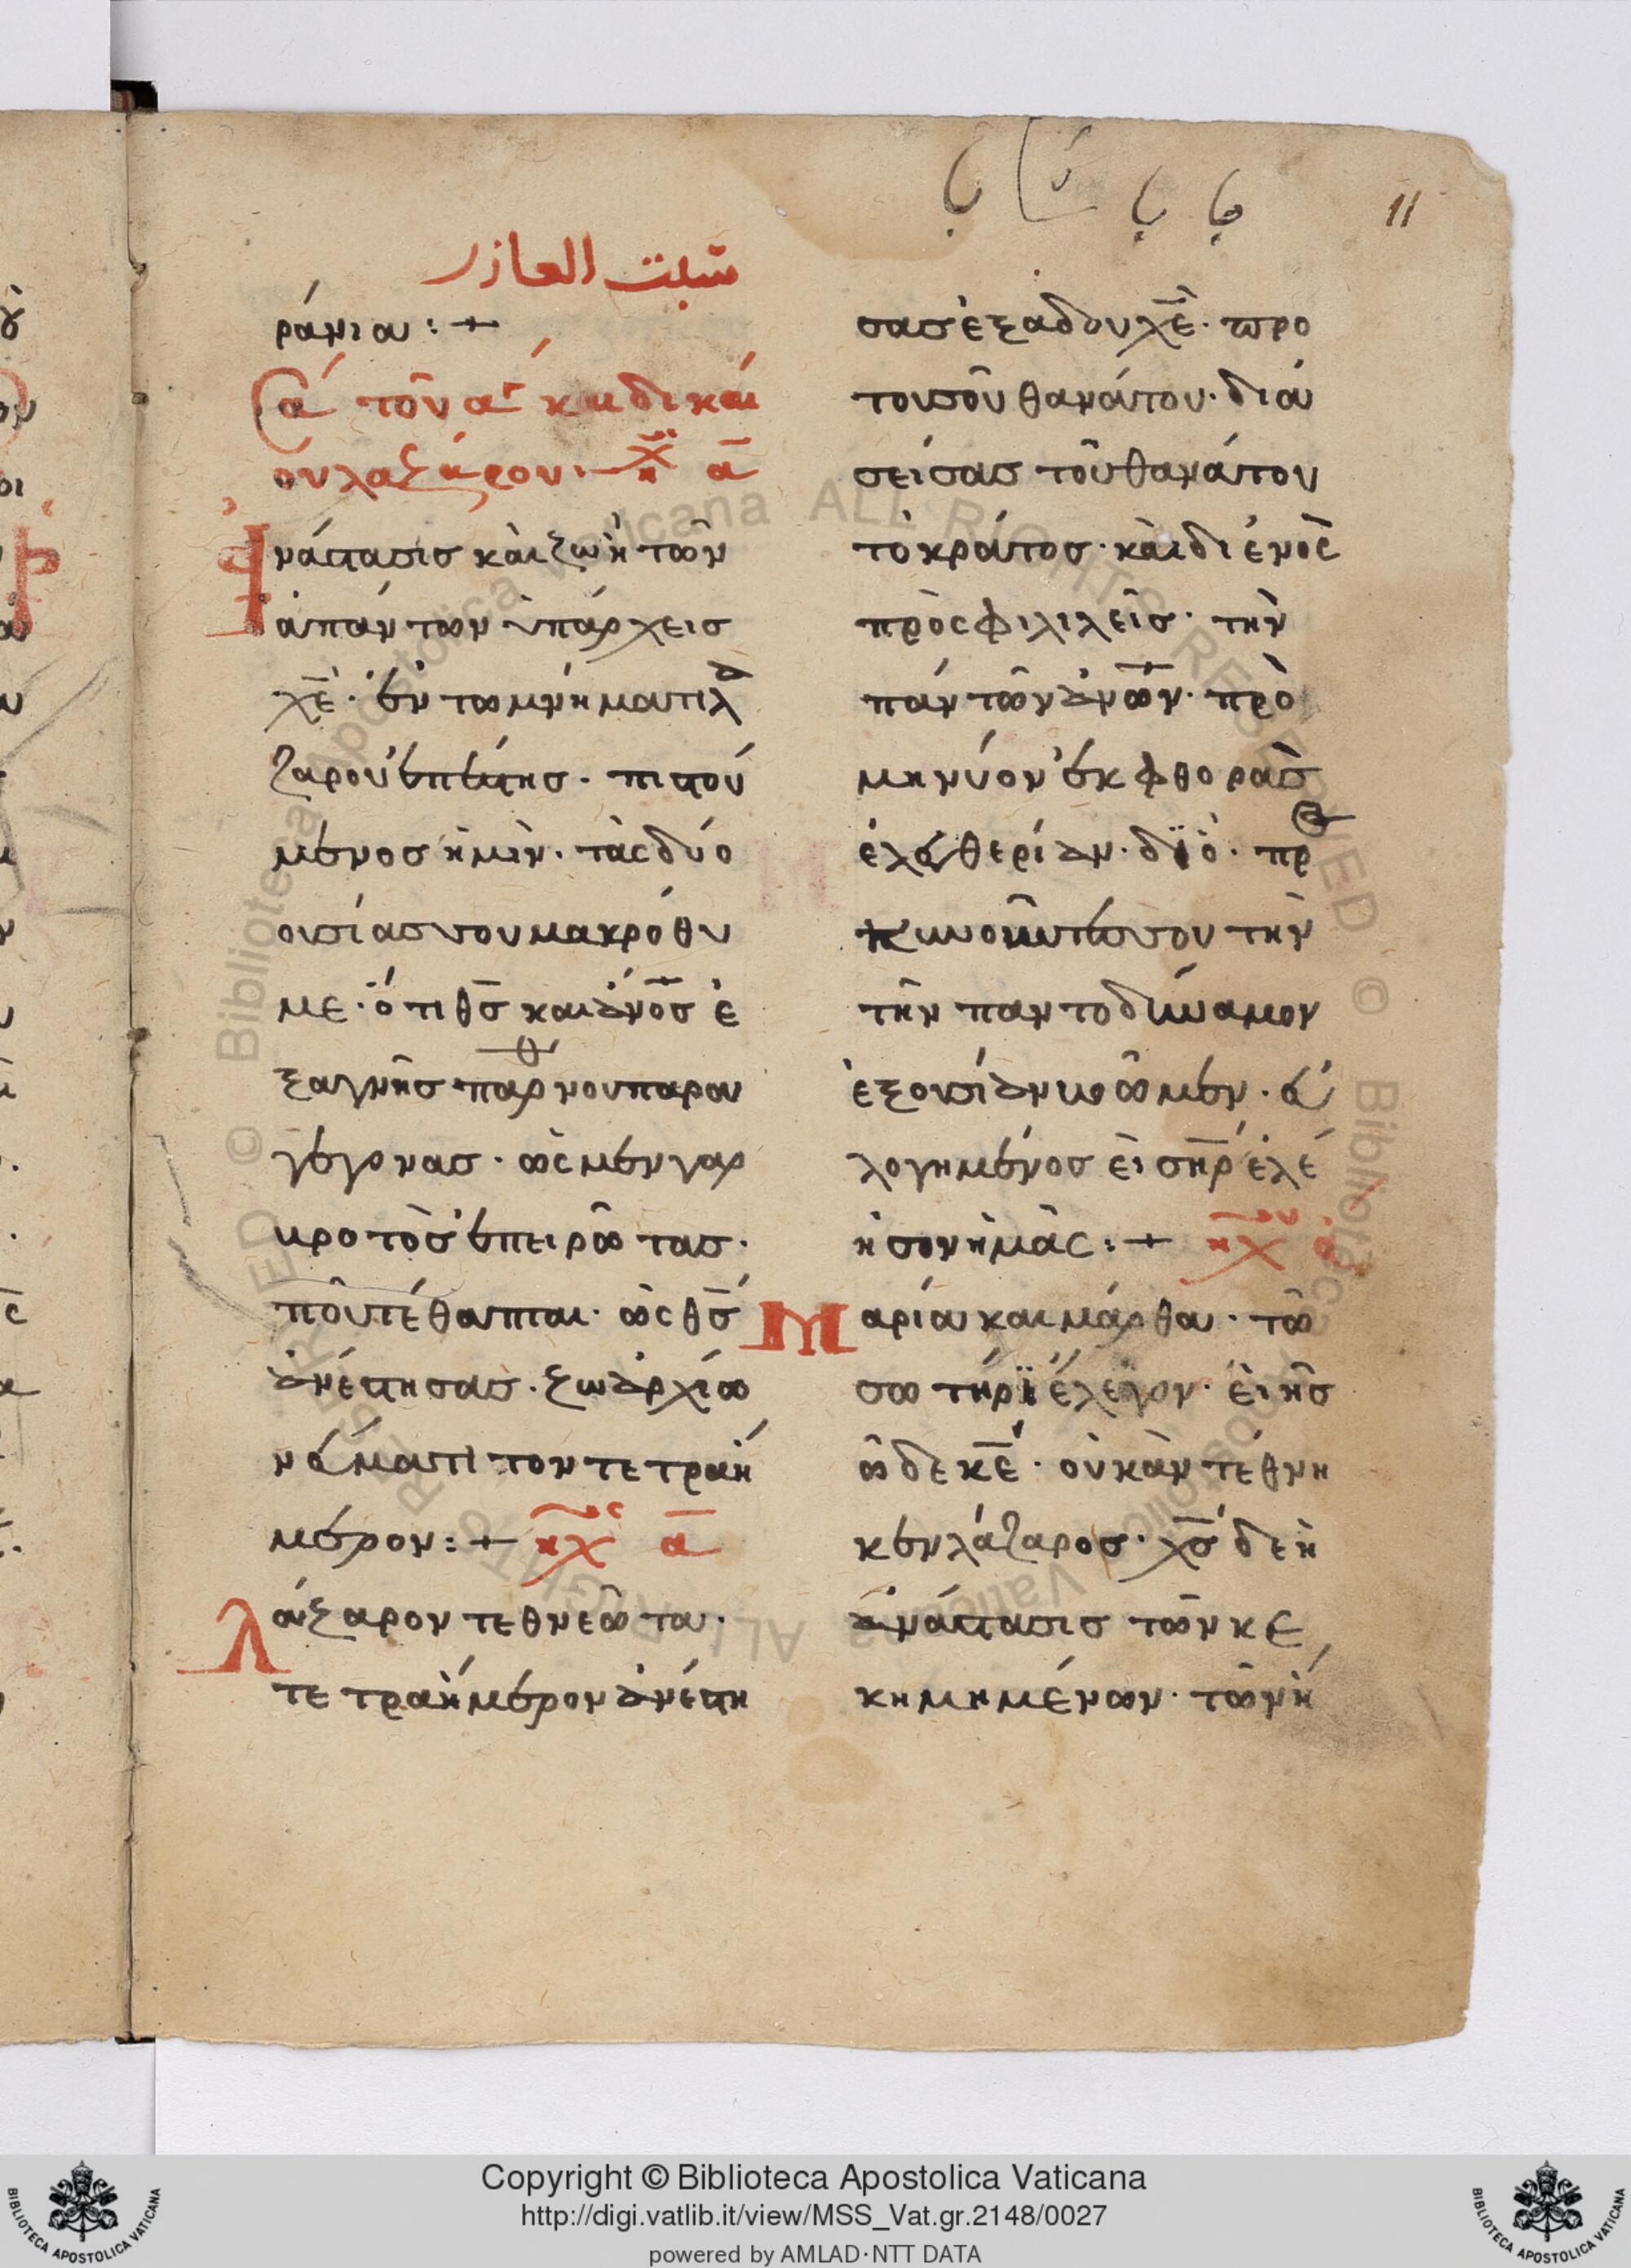 11
سبت العازر
ράνια:+
σά τοῦ ἁγ καὶ δικαί
ου λαζάρου· ἦχ ᾱ
Ἀνάστασις καὶ ζωὴ τῶν
ἁπάντων ὑπάρχεις
χε̄· ἐν τῶ μνήματι λα
ζάρου ἐπέστης· πιστού
μενος ἡμῖν· τὰς δύο
ουσίας σου μακρόθυ
με· ὅτι θσ̄ και ἀνο̄σ ἐ
ξαγνῆς παρθνου παρα
γέγονας· ὡς μεν γαρ
κροτὸς ἐπειρώτας·
ποῦ τέθαπται· ὡς θσ̄
ἀνέστησας· ξωἀρχίω
νεύματι τον τετραή
μερον:+ ηχ ᾱ
Λάξαρον τεθνεῶτα·
τετραήμερον ἀνέστη
σας ἐξ αδου χε̄· προ
του σοῦ θανάτου· διά
σείσας τοῦ θανάτου
τὸ κράτος· καὶ δι ἑνὸς
πρὸς φιλιλεῖς· τὴν
πάντων ἀνω̄ν· πρὸ
μηνύον ἐκ φθορᾶς
ἐλευθερίαν· δϊὸ· πρ
κυνοῦντές σου τὴν
τὴν παντοδύναμον
ἐξουσίαν βοῶμεν· εὐ
λογημένος εἶ ση̄ρ ἐλέ
ησον ἡμᾶς:+ ηχ
Μαρία και μάρθα· τῶ
σωτήρϊ ἔλεγον· εἰ ἦς
ὧδε κε̄· οὐκ ἂν τέθνη
κεν λάζαρος· χσ̄ δε ἡ
ἀνάστασις τῶν κε
κημημένων· τῶν ἤ